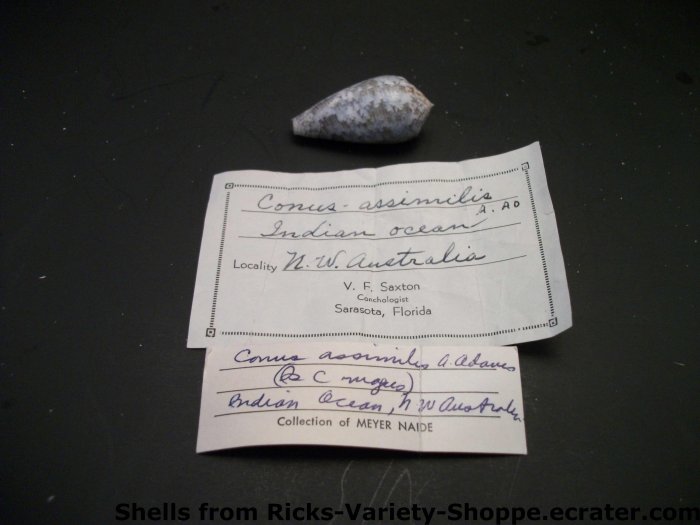 Conus - assimilis
A. AD
Indian ocean
Locality N. W. Australia
V. F. Saxton
Conchologist
Sarasota, Florida
Conus assimilis A. Adams
(Is C magus)
Indian Ocean, N W Australia
Collection of MEYER NAIDE
Shells from Ricks-Variety-Shoppe.ecrater.com